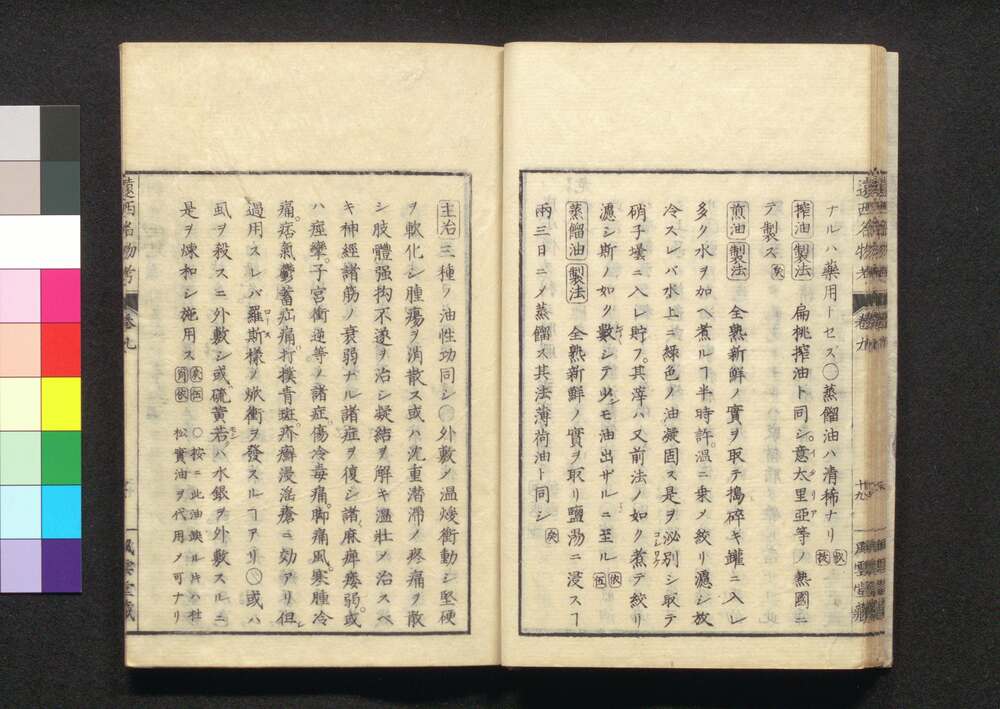 ナルハ藥用トセズ〇蒸餾油ハ清稀ナリ
搾油 製法 扁桃搾油ト同シ意太里亞等ノ熱國ニ
テ製ス
煎油 製法 全熟新鮮ノ實ヲ取テ搗碎キ罐ニ入レ
多ク水ヲ加ヘ煮ルヿ半時許溫ニ乗メ絞リ濾シ放
冷スレバ水上ニ綠色ノ油凝固ス是ヲ泌別シ取テ
硝子壜ニ入レ貯フ其滓ハ又前法ノ如ク煮テ絞リ
濾シ斯ノ如ク數シテ少モ油出ザルニ至ル
蒸餾油 製法 全熟新鮮ノ實ヲ取リ鹽湯ニ浸スヿ
兩三日ニメ蒸餾ス其法薄荷油ト同シ
遠西名物考 卷九 十九 風雲堂藏
主治 三種ノ油性功同シ〇外敷ノ溫煖衝動シ堅硬
ヲ軟化シ腫瘍ヲ消散ス或ハ沈重濳滯ノ疼痛ヲ散
シ肢體强拘不遂ヲ治シ凝結ヲ解キ溫壯ノ治スベ
キ神經諸筋ノ衰弱ナル諸症ヲ復シ諸麻痺痿弱或
ハ痙攣子宮衝逆等ノ諸症傷冷毒痛脚痛風寒腫冷
痛痞氣鬱蓄疝痛打撲靑斑疥癬漫淫瘡ニ効アリ但
過用スレバ羅斯樣ノ焮衝ヲ發スルヿアリ〇或ハ
虱ヲ殺スニ外敷シ或硫黃若ハ水銀ヲ外敷スルニ
是ヲ煉和シ施用ス 〇按ニ此油缺ル片ハ杜
松實油ヲ代用メ可ナリ
遠西名物考 卷九 風雲堂藏